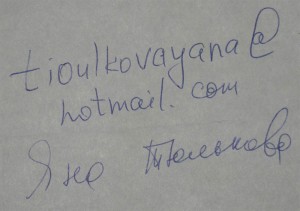 tioulkovayana@
hotmail. com
Яна Тюлькова